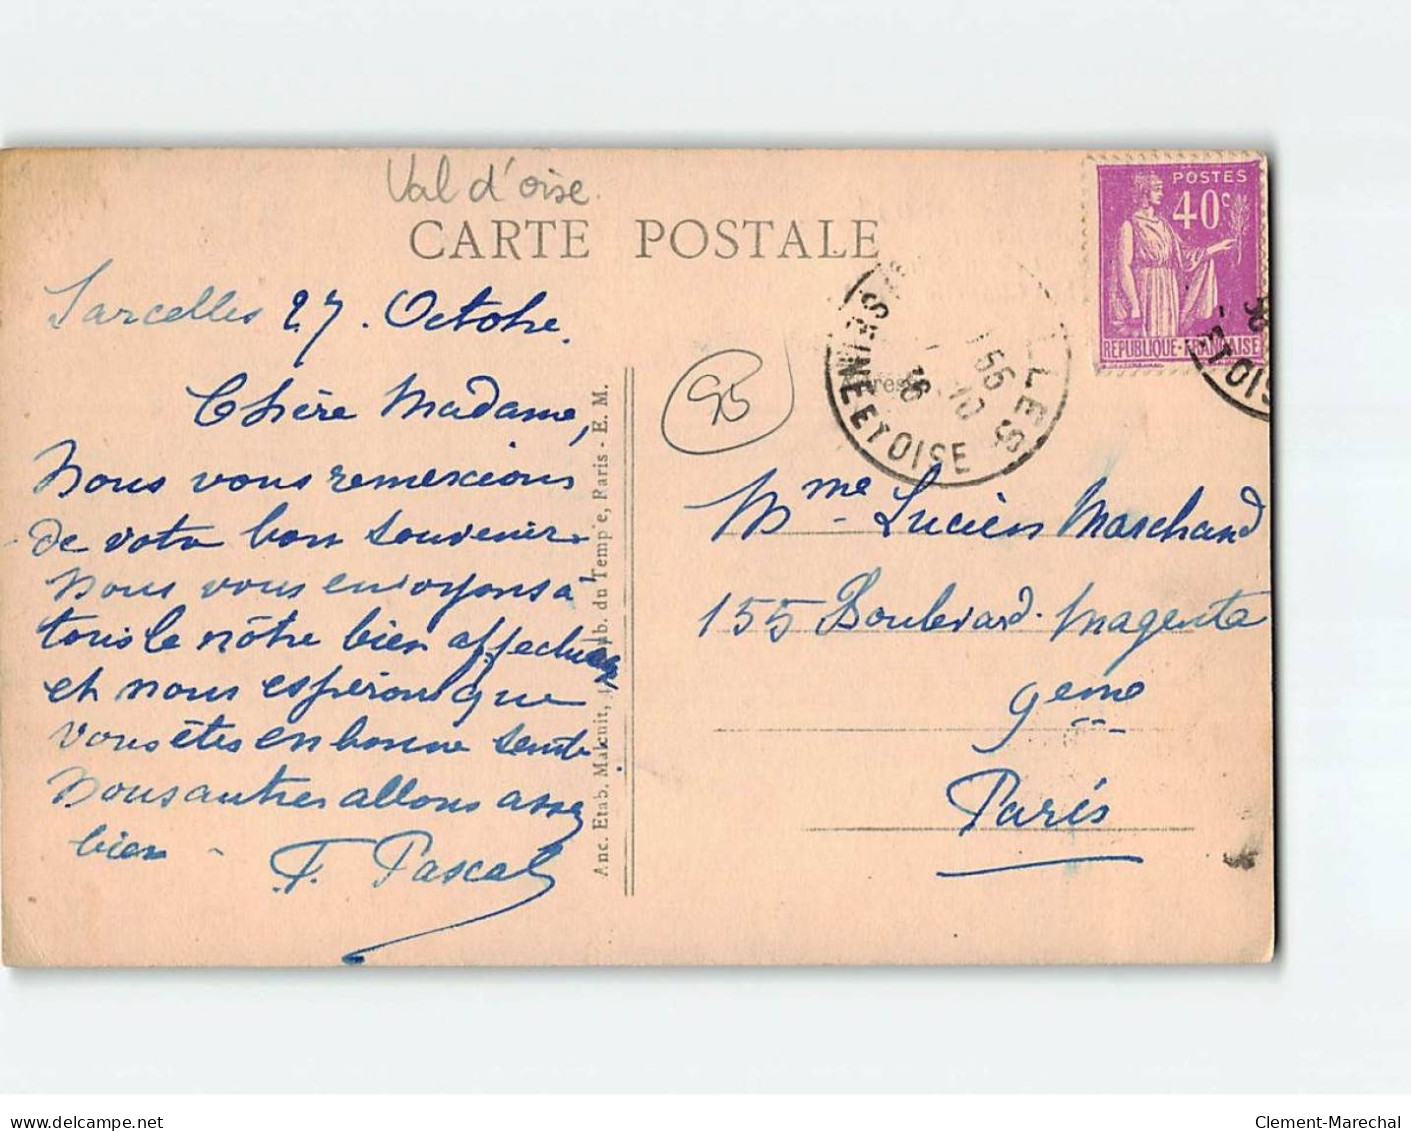 Val d'oise.
CARTE POSTALE
Sarcelles 27. Octobre.
Chère Madame,
Nous vous remercions
de votre bon souvenir.
Nous vous envoyons à
tous le nôtre bien affectueux
et nous espérons que
vous êtes en bonne santé
Nous autres allons assez
bien -
F. Pascal
Anc. Etab. Malcuit, Fb. du Temple, Paris - E. M.
95
POSTES
40c
REPUBLIQUE-FRANÇAISE
SEINE ET OISE
LLES
36
ET OIS
Mme Lucien Marchand
155 Boulevard Magenta
9eme
Paris
delcampe.net
Clement-Marechal